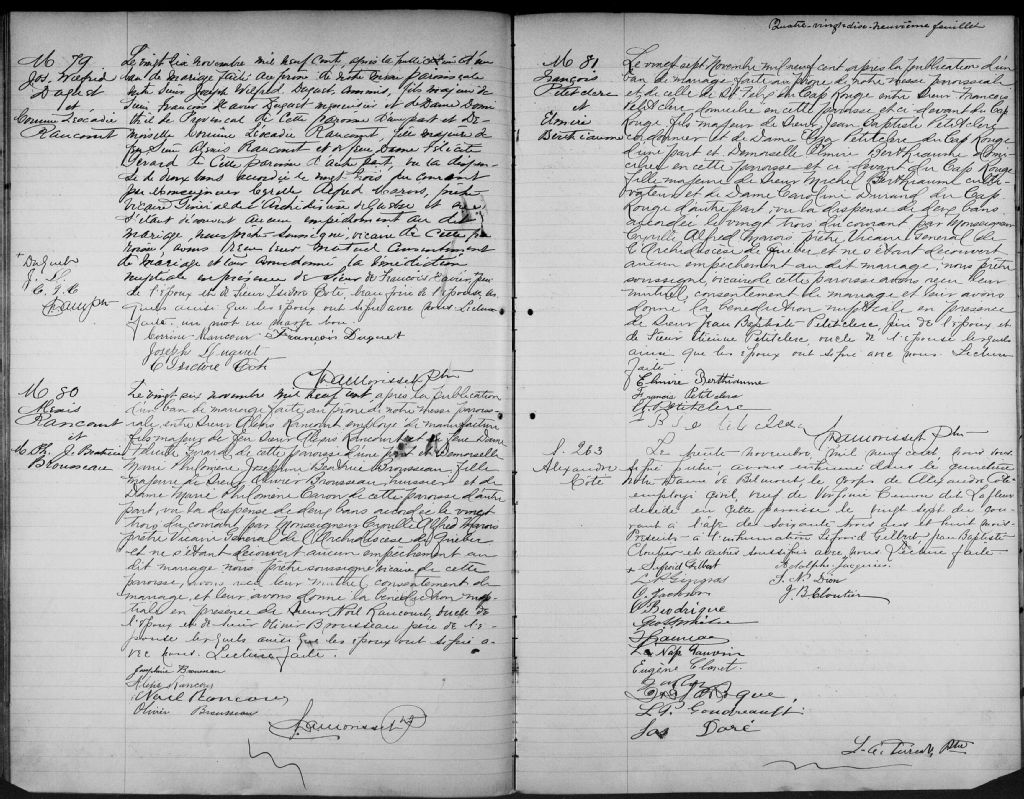 M 79
Jos. Wilfrid
Duquet
et
Corinne Léocadie
Rancourt
Le vingt six novembre mil neuf cent, après la publication d'un
ban de mariage faite au prône de notre messe paroissiale
entre Sieur Joseph Wilfrid Duquet, commis, fils majeur de
Sieur François Xavier Duquet et de Dame
de cette paroisse d'une part et De-
moiselle Corinne Léocadie Rancourt, fille majeure de
feu Sieur Alexis Rancourt et de feu Dame Félicité
Gérard de cette paroisse d'autre part, vu la dispen-
se de deux bans accordée le vingt trois du courant
par Monseigneur Cyrille Alfred Marois, prêtre
Vicaire Général de l'Archidiocèse de Québec et ne
s'étant découvert aucun empêchement au dit
mariage, nous prêtre soussigné, vicaire de cette pa-
roisse, avons reçu leur mutuel consentement
de mariage et leur avons donné la bénédiction
nuptiale en présence de Sieur François Xavier père
de l'époux et de Sieur Isidore Coté, beau frère de l'épouse, les-
quels ainsi que les époux ont signé avec nous. Lecture
faite. un mot en marge bon.
+ Duquet
François Duquet
Joseph W Duquet
C Isidore Coté
Lamorisset Ptre
M 80
Alexis
Rancourt
et
M. Ph. J. Béatrice
Brousseau
Le vingt six novembre mil neuf cent, après la publication
d'un ban de mariage faite au prône de notre messe parois-
siale entre Sieur Alexis Rancourt employé de manufacture
fils majeur de feu Sieur Alexis Rancourt et de feue Dame
Félicité Girard, de cette paroisse d'une part, et Demoiselle
Marie Philomène Joséphine Béatrice Brousseau, fille
majeure de Sieur Olivier Brousseau huissier et de
Dame Marie Philomène Caron de cette paroisse d'autre
part, vu la dispense de deux bans accordée le vingt
trois du courant, par Monseigneur Cyrille Alfred Marois
prêtre Vicaire Général de l'Archidiocèse de Québec
et ne s'étant découvert aucun empêchement au
dit mariage nous prêtre soussigné vicaire de cette
paroisse, avons reçu leur mutuel consentement de
mariage, et leur avons donné la bénédiction nup-
tiale en présence de Sieur Noël Rancourt, oncle de
l'époux et de Sieur Olivier Brousseau père de l'é-
pouse lesquels ainsi que les époux ont signé a-
vec nous. Lecture faite.
Joséphine Brousseau
Alexis Rancourt
Noël Rancourt
Olivier Brousseau
Lamorisset Ptre
Quatre-vingt-dix-neuvième feuillet
M 81
François
Petitclerc
et
Elmire
Berthiaume
Le vingt sept Novembre mil neuf cent après la publication d'un
ban de mariage faite au prône de notre messe paroissiale
et de celle de St Félix du Cap Rouge entre Sieur François
Petitclerc, domicilié en cette paroisse et ci-devant du Cap
Rouge fils majeur de Sieur Jean Baptiste Petitclerc
cordonnier et de Dame Petitclerc du Cap Rouge
d'une part et Demoiselle Elmire Berthiaume domi-
ciliée en cette paroisse et ci-devant du Cap Rouge
fille majeure de Sieur Michel Berthiaume culti-
vateur et de Dame Caroline Durand du Cap
Rouge d'autre part; vu la dispense de deux bans
accordée le vingt trois du courant par Monseigneur
Cyrille Alfred Marois prêtre, Vicaire Général de
l'Archidiocèse de Québec et ne s'étant découvert
aucun empêchement au dit mariage, nous prêtre
soussigné, vicaire de cette paroisse avons reçu leur
mutuel consentement de mariage et leur avons
donné la bénédiction nuptiale en présence
de Sieur Jean Baptiste Petitclerc, père de l'époux et
de Sieur Petitclerc, oncle de l'épouse lesquels
ainsi que les époux ont signé avec nous. Lecture
faite
Elmire Berthiaume
François Petitclerc
Petitclerc
Lamorisset Ptre
S. 263
Alexandre
Côté
Le trente novembre, mil neuf cent, nous sous-
signé prêtre, avons inhumé dans le cimetière
Notre Dame de Belmont, le corps de Alexandre Côté
employé civil, veuf de dit Lafleur
décédé en cette paroisse le vingt sept du cou-
rant à l'âge de soixante trois ans et huit mois.
Présents à l'inhumation Sifroid Gilbert, Jean Baptiste
Cloutier et autres soussignés avec nous. Lecture faite.
+ Sifroid Gilbert
Adolphe Jacques
L P Gingras
F. N. Dion
J B Cloutier
O. Jackson
Nap Gauvin
Eugène Cloret
L. P. Goudreault
Jos Doré
Ptre